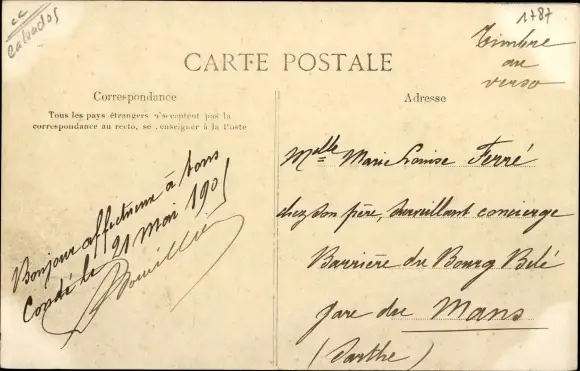 cc
Calvados
1787
Timbre
au
verso
CARTE POSTALE
Correspondance
Tous les pays étrangers n'acceptent pas la
correspondance au recto, se renseigner à la Poste
Bonjour affectueux à tous
Condé le 21 Mai 190
Adresse
Melle Marie Louise Ferré
chez son père, surveillant concierge
Barrière du Bourg Belé
gare du Mans
(Sarthe)